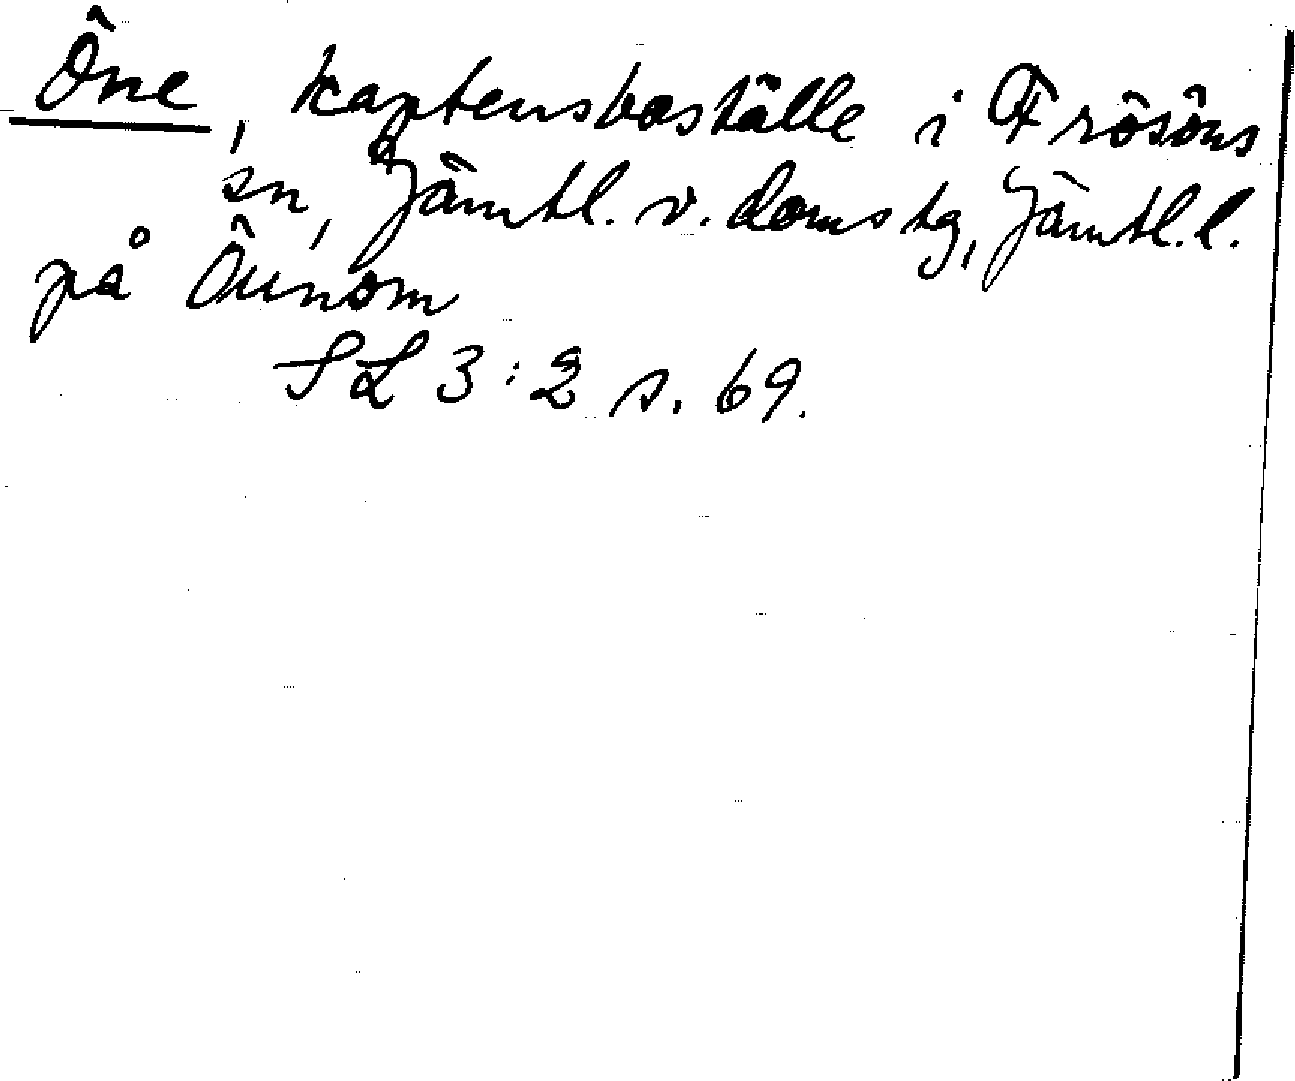 Öne, kaptensboställe i Frösöns
sn, Jämtl. v. doms tg, Jämtl. l.
på Öunom
SL 3:2 s. 69.